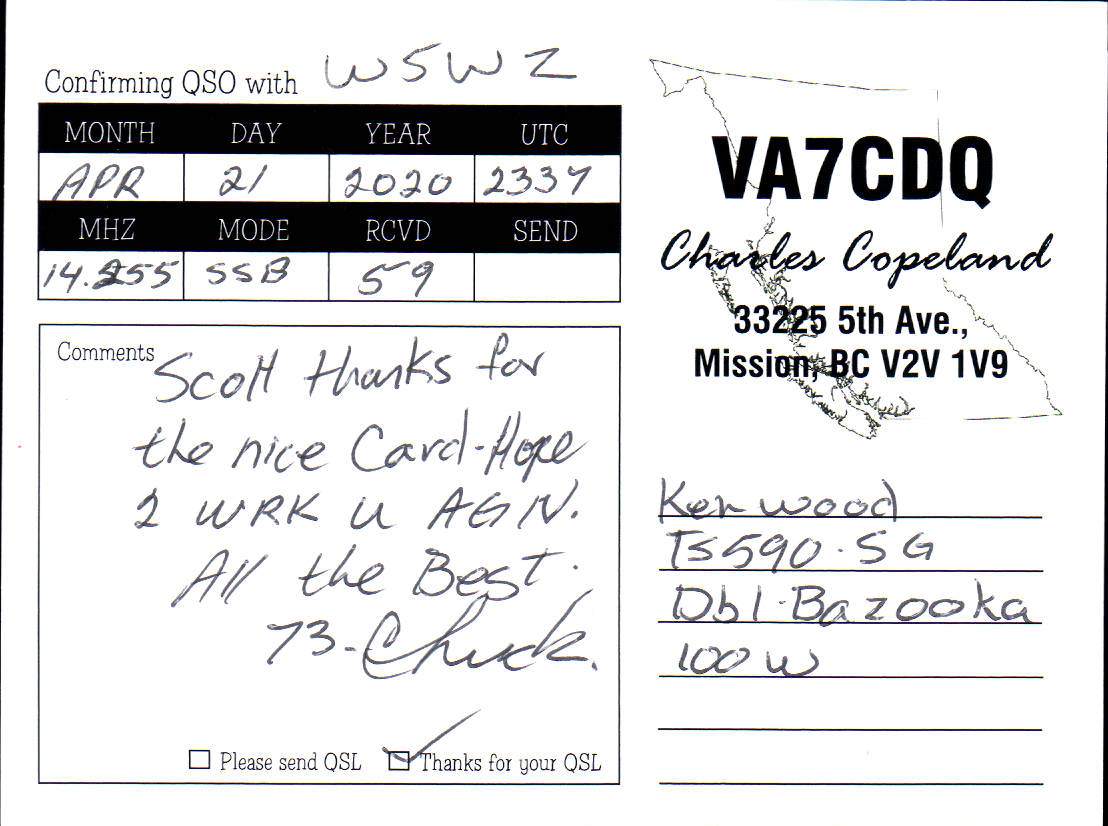 Confirming QSO with W5WZ
MONTH DAY YEAR UTC
APR 21 2020 2337
MHZ MODE RCVD SEND
14.255 SSB 59
Comments Scott thanks for
the nice Card-Hope
2 WRK U AGN.
All the Best.
73-Chuck.
Please send QSL Thanks for your QSL
VA7CDQ
Charles Copeland
33225 5th Ave.,
Mission, BC V2V 1V9
Kenwood
TS590-SG
Dbl-Bazooka
100 W